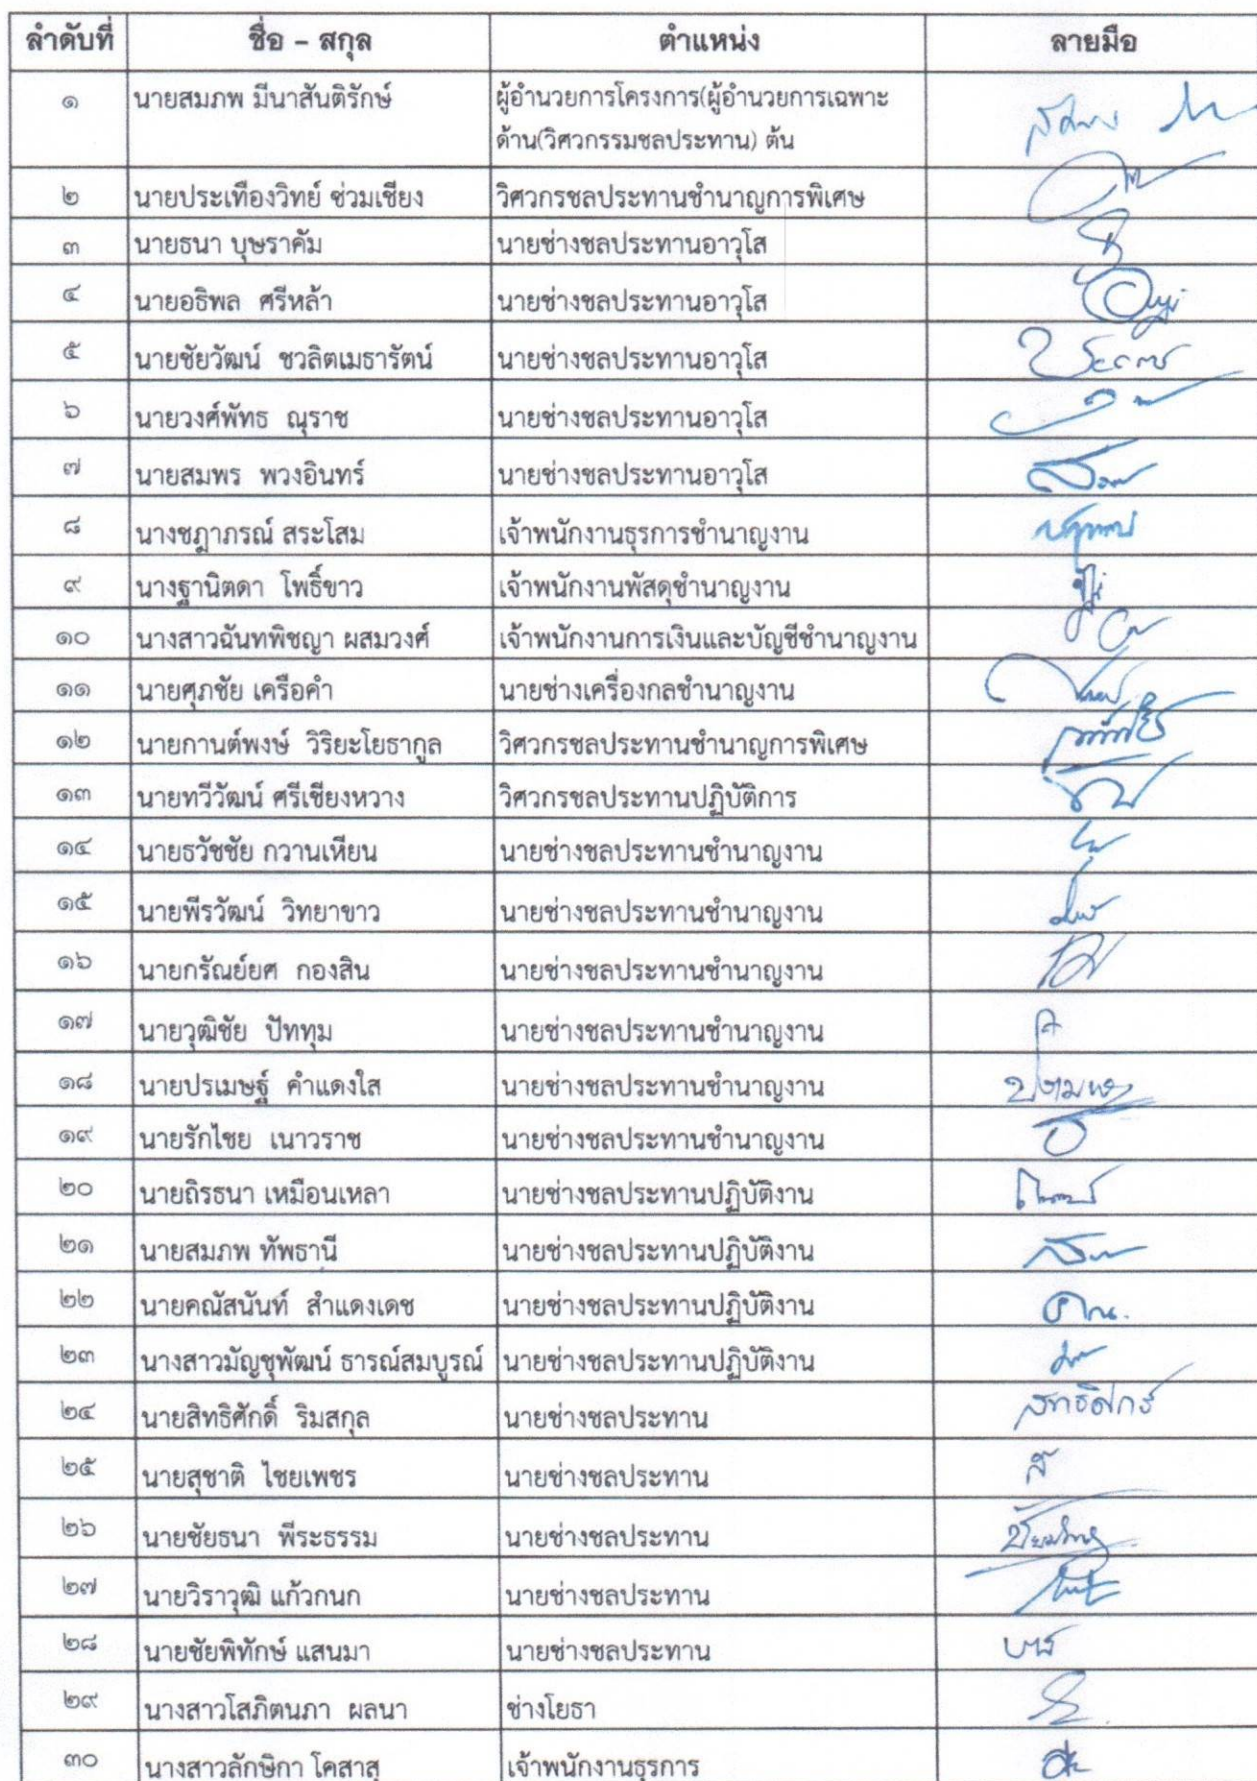 ลำดับที่ ชื่อ – สกุล ตำแหน่ง ลายมือ
๑ นายสมภพ มีนาสันติรักษ์ ผู้อำนวยการโครงการ(ผู้อำนวยการเฉพาะ
ด้าน(วิศวกรรมชลประทาน) ต้น
๒ นายประเทืองวิทย์ ช่วมเชียง วิศวกรชลประทานชำนาญการพิเศษ
๓ นายธนา บุษราคัม นายช่างชลประทานอาวุโส
๔ นายอธิพล ศรีหล้า นายช่างชลประทานอาวุโส
๕ นายชัยวัฒน์ ชวลิตเมธารัตน์ นายช่างชลประทานอาวุโส
๖ นายวงศ์พัทธ ณุราช นายช่างชลประทานอาวุโส
๗ นายสมพร พวงอินทร์ นายช่างชลประทานอาวุโส
๘ นางชฎาภรณ์ สระโสม เจ้าพนักงานธุรการชำนาญงาน
๙ นางฐานิตดา โพธิ์ขาว เจ้าพนักงานพัสดุชำนาญงาน
๑๐ นางสาวฉันทพิชญา ผสมวงศ์ เจ้าพนักงานการเงินและบัญชีชำนาญงาน
๑๑ นายศุภชัย เครือคำ นายช่างเครื่องกลชำนาญงาน
๑๒ นายกานต์พงษ์ วิริยะโยธากูล วิศวกรชลประทานชำนาญการพิเศษ
๑๓ นายทวีวัฒน์ ศรีเชียงหวาง วิศวกรชลประทานปฏิบัติการ
๑๔ นายธวัชชัย กวานเหียน นายช่างชลประทานชำนาญงาน
๑๕ นายพีรวัฒน์ วิทยาขาว นายช่างชลประทานชำนาญงาน
๑๖ นายกรัณย์ยศ กองสิน นายช่างชลประทานชำนาญงาน
๑๗ นายวุฒิชัย ปัททุม นายช่างชลประทานชำนาญงาน
๑๘ นายปรเมษฐ์ คำแดงใส นายช่างชลประทานชำนาญงาน
๑๙ นายรักไชย เนาวราช นายช่างชลประทานชำนาญงาน
๒๐ นายถิรธนา เหมือนเหลา นายช่างชลประทานปฏิบัติงาน
๒๑ นายสมภพ ทัพธานี นายช่างชลประทานปฏิบัติงาน
๒๒ นายคณัสนันท์ สำแดงเดช นายช่างชลประทานปฏิบัติงาน
๒๓ นางสาวมัญชุพัฒน์ ธารณ์สมบูรณ์ นายช่างชลประทานปฏิบัติงาน
๒๔ นายสิทธิศักดิ์ ริมสกุล นายช่างชลประทาน
๒๕ นายสุชาติ ไชยเพชร นายช่างชลประทาน
๒๖ นายชัยธนา พีระธรรม นายช่างชลประทาน
๒๗ นายวิราวุฒิ แก้วกนก นายช่างชลประทาน
๒๘ นายชัยพิทักษ์ แสนมา นายช่างชลประทาน
๒๙ นางสาวโสภิตนภา ผลนา ช่างโยธา
๓๐ นางสาวลักษิกา โคสาสุ เจ้าพนักงานธุรการ